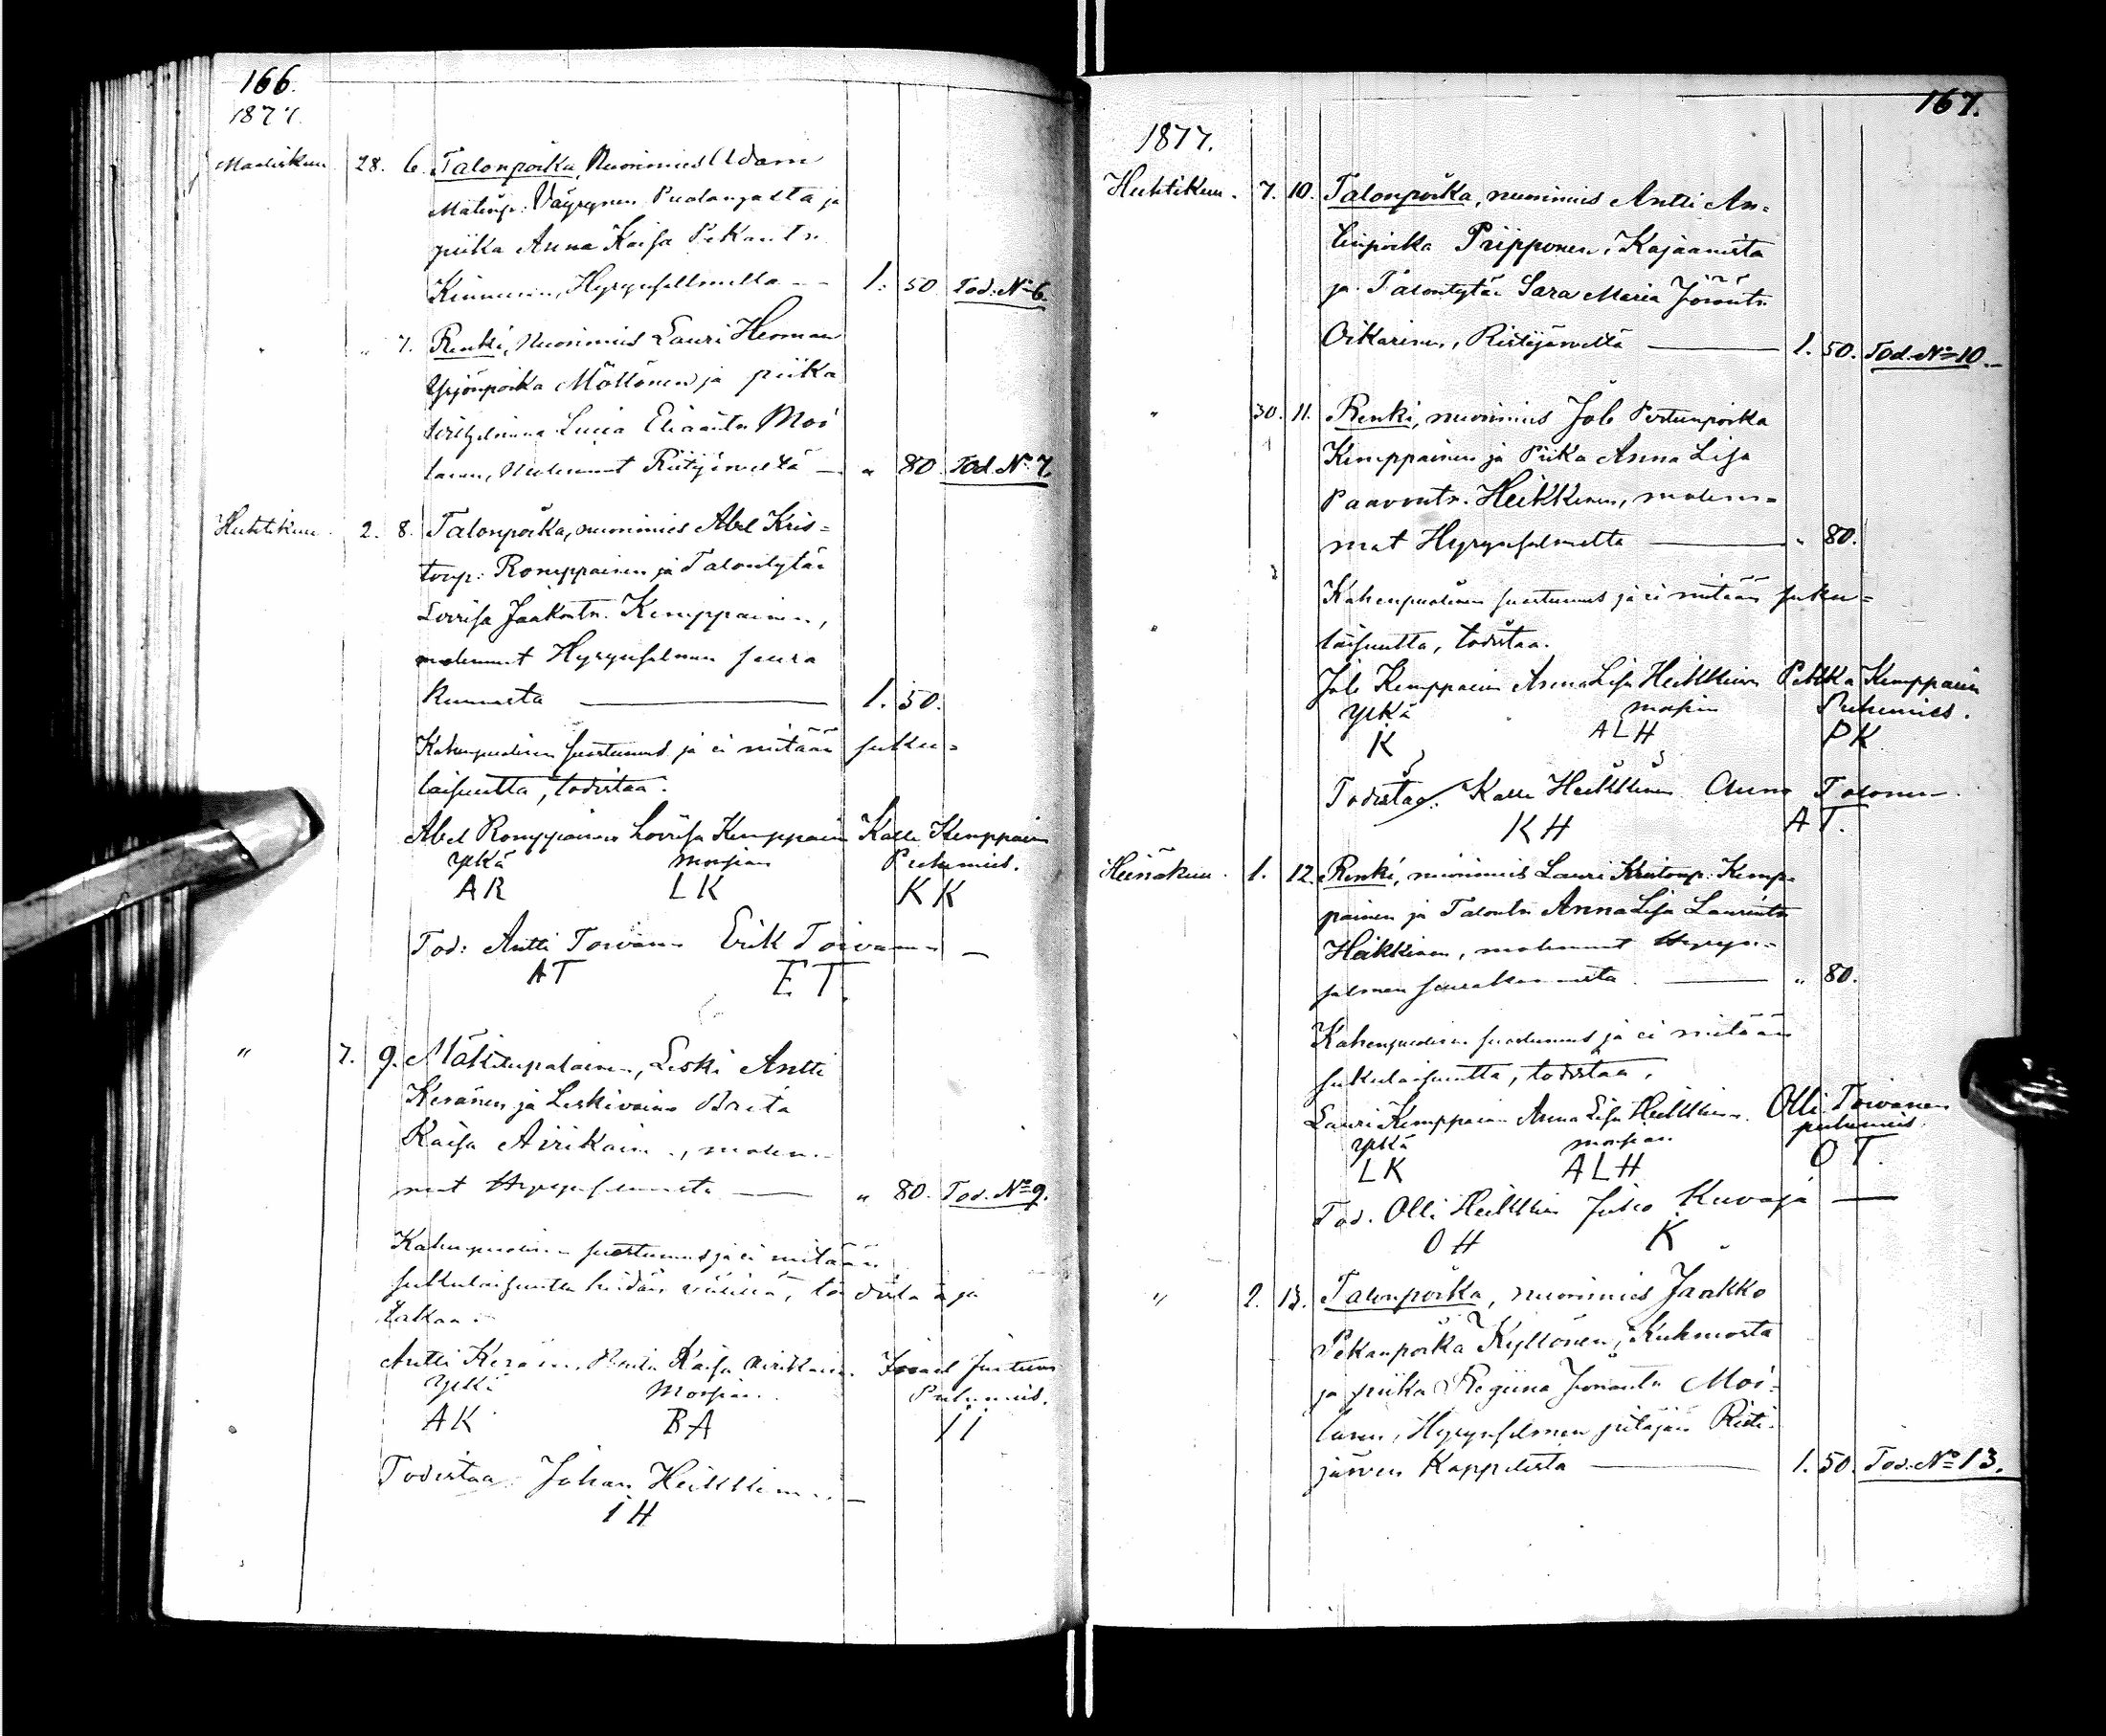 166.
1877.
Maaliskuu 28. 6. Talonpoika, Nuorimies Adam
Matinp: Väyrynen Puolangalta ja
piika Anna Kaisa Pekantr
Kinnunen, Hyrynsalmelta -- 1. 50 Tod: No 6.
" 7. Renki, Nuorimies Lauri Herman
Yrjönpoika Möttönen ja piika
Lucia Eliaantr Moi
lanen, Molemmat Ristijärveltä — " 80 Tod. No 7.
Huhtikuu 2. 8. Talonpoika, nuorimies Abel Kris=
toup: Romppainen ja Talontytär
Lovisa Jaakontr. Kemppainen,
molemmat Hyrynsalmen seura
kunnasta — 1. 50.
Kahenpuolinen suostumus ja ei mitään suku=
laisuutta, todistaa.
Abel Romppainen Lovisa Kemppainen Kalle Kemppainen
Ylkä morsian Puhemies.
AR LK KK
Tod: Antti Toivanen Erik Toivanen —
AT ET.
" 7. 9. Mäkitupalainen, Leski Antti
Keränen ja Leskivaimo Brita
Kaisa Airikainen, molem-
mat Hyrynsalmelta — " 80. Tod. No 9.
Kahenpuolinen suostumus ja ei mitään
sukulaisuutta heidän välillä, todistaa ja
takaa.
Antti Keränen Brita Kaisa Airikainen Juntunen
Ylkä Morsian Puhemies.
AK BA II
Todistaa Johan Heikkinen —
IH
167.
1877.
Huhtikuu. 7. 10. Talonpoika, nuorimies Antti An=
tinpoika Piipponen, Kajaanista
ja Talontytär Sara Maria Joroontr
Oikarinen, Ristijärveltä — 1. 50. Tod. No 10.
" 30. 11. Renki, nuorimies Job Pertunpoika
Kemppainen ja Piika Anna Lisa
Paavontr. Heikkinen, molem=
mat Hyrynsalmelta — " 80.
Kahenpuolinen suostumus ja ei mitään suku=
laisuutta, todistaa.
Job Kemppainen Anna Lisa Heikkinen Pekka Kemppainen
Ylkä morsian Puhemies.
K ALH PK
Todistaa: Kalle Heikkinen Tolonen
KH AT.
Heinäkuu. 1. 12. Renki, nuorimies Lauri Kristoup: Kemp-
painen ja Talontr Anna Lisa Laurintr
Heikkinen, molemmat Hyryn-
salmen seurakunnasta — " 80.
Kahenpuolinen suostumus ja ei mitään
sukulaisuutta, todistaa,
Lauri Kemppainen Anna Lisa Heikkinen. Olli Toivanen
Ylkä morsian puhemies.
LK ALH OT.
Tod. Olli Heikkinen Juho Kuvaja —
OH K
" 2. 13. Talonpoika, nuorimies Jaakko
Pekanpoika Kyllönen, Kuhmosta
ja piika Regiina Moi=
lanen, Hyrynsalmen pitäjän Risti-
järven Kappelista — 1. 50. Tod. No 13.